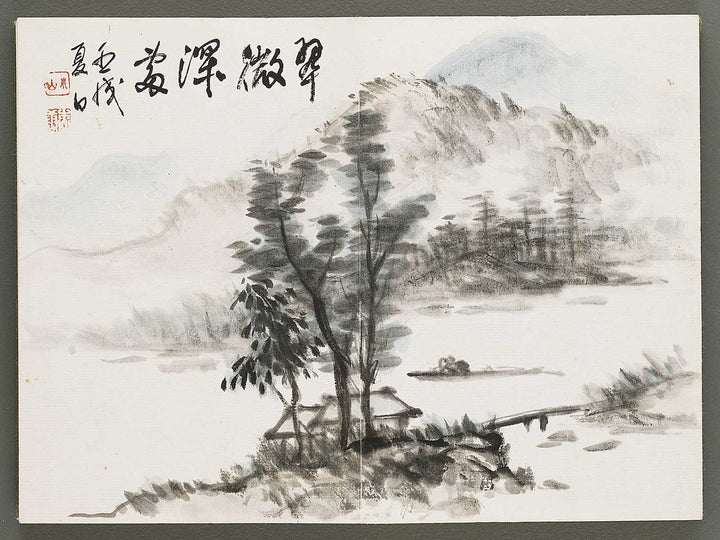 翠微深處
壬戌
夏日